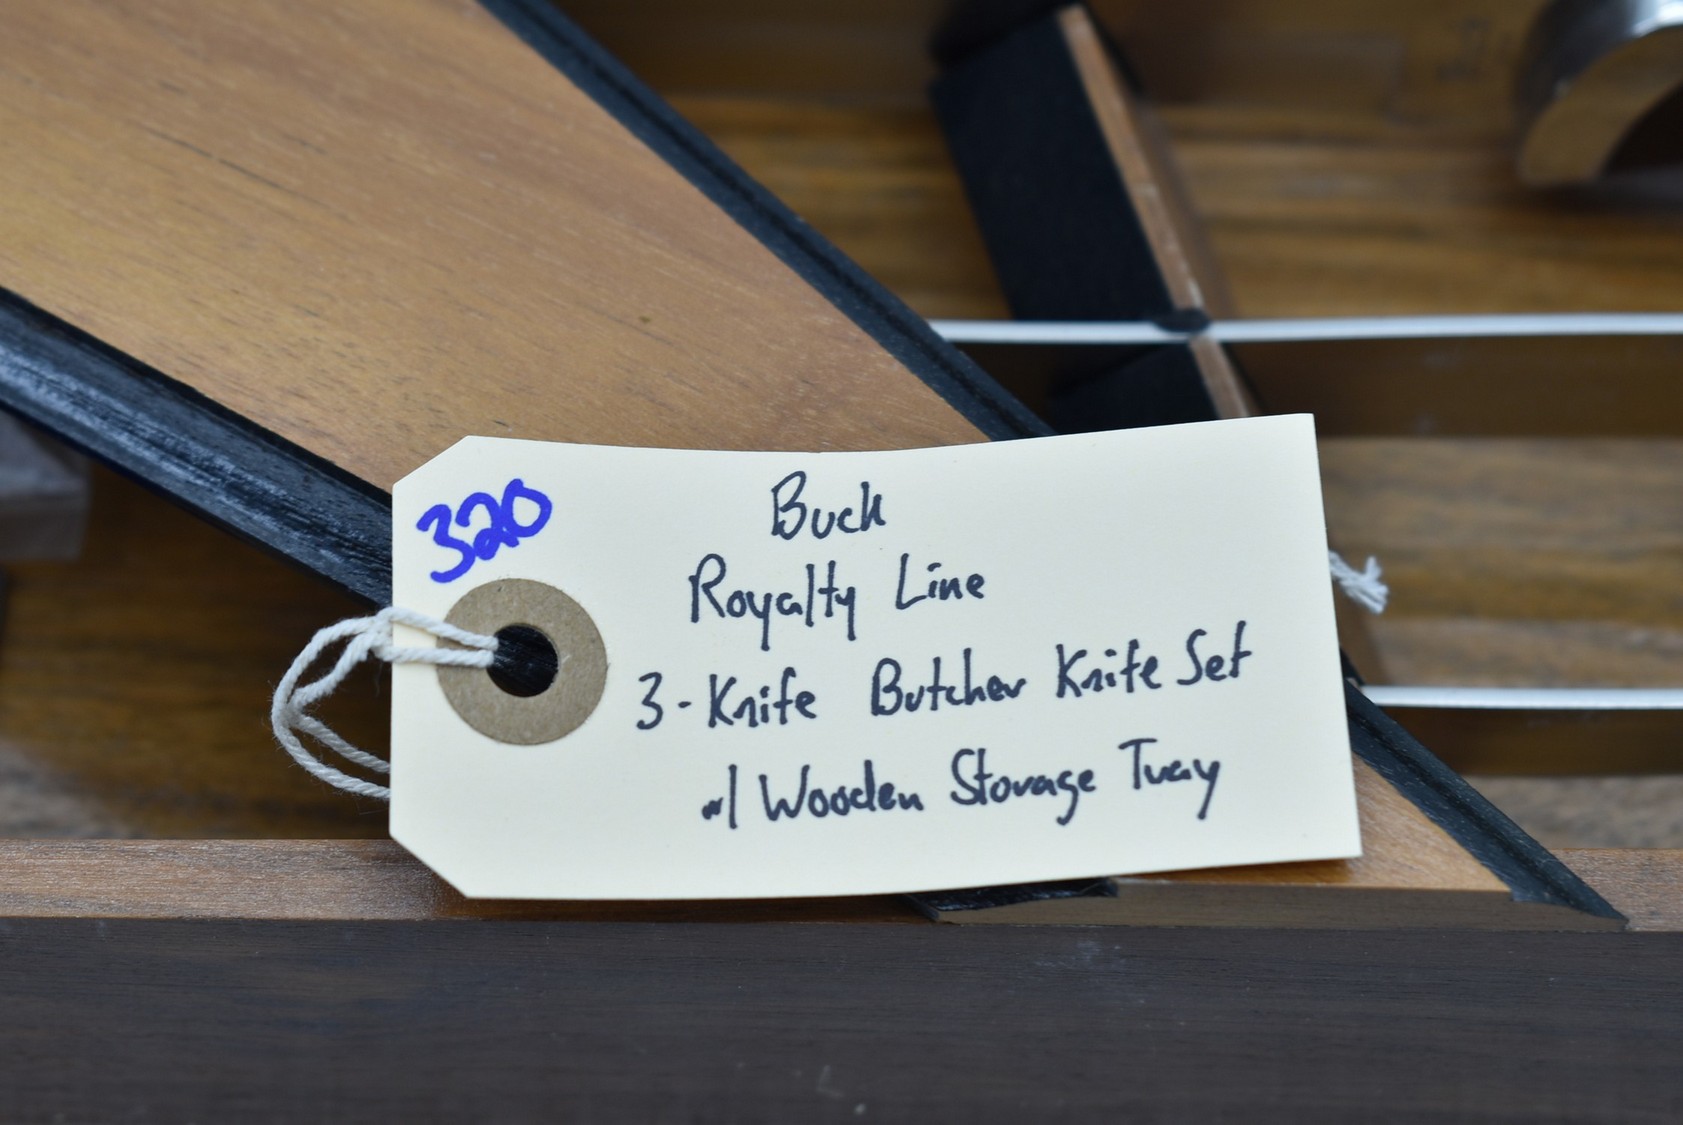 320
Buck
Royalty Line
3-Knife Butcher Knife Set
w/ Wooden Storage Tray